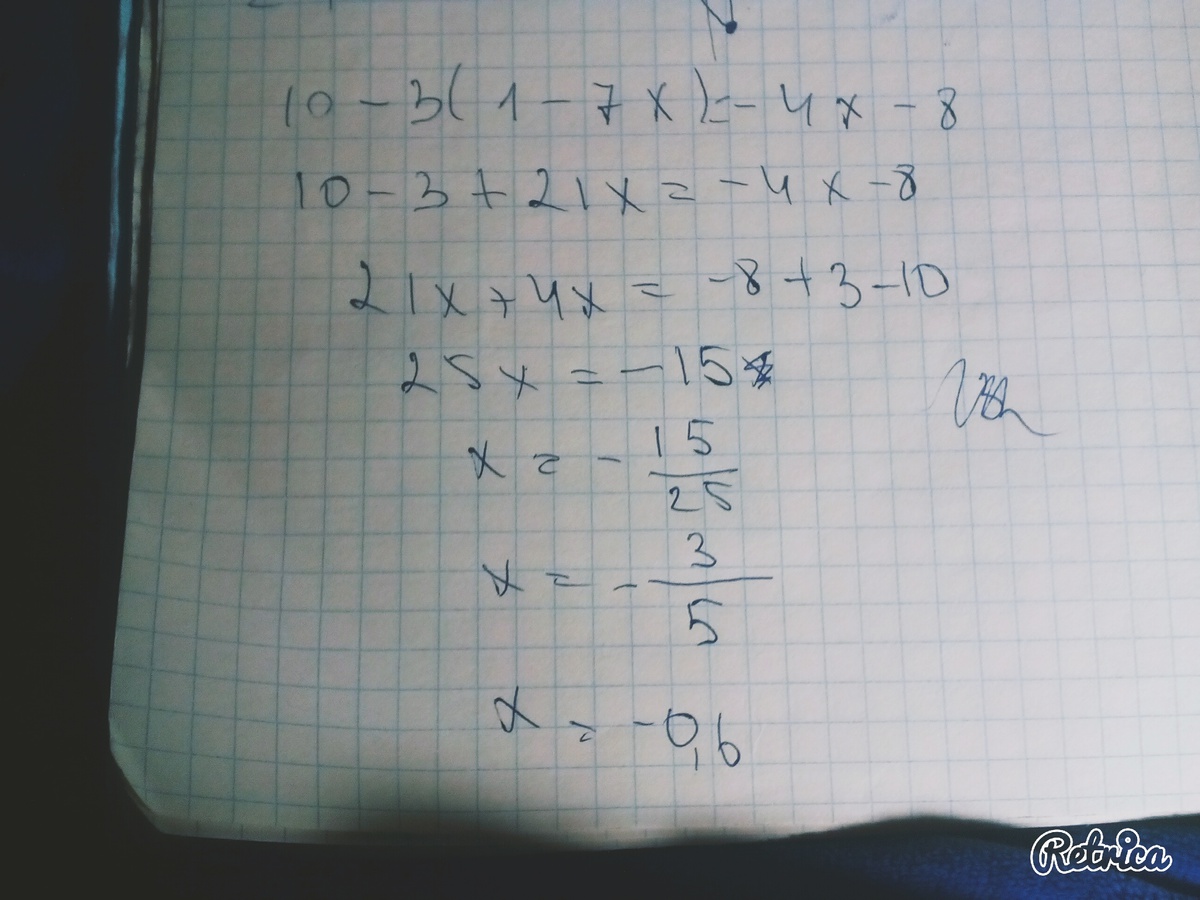 10 - 3(1 - 7x) = - 4x - 8
10 - 3 + 21x = - 4x - 8
21x + 4x = -8 + 3 - 10
25x = - 15
x = - 15/25
x = - 3/5
x = - 0,6
Retrica